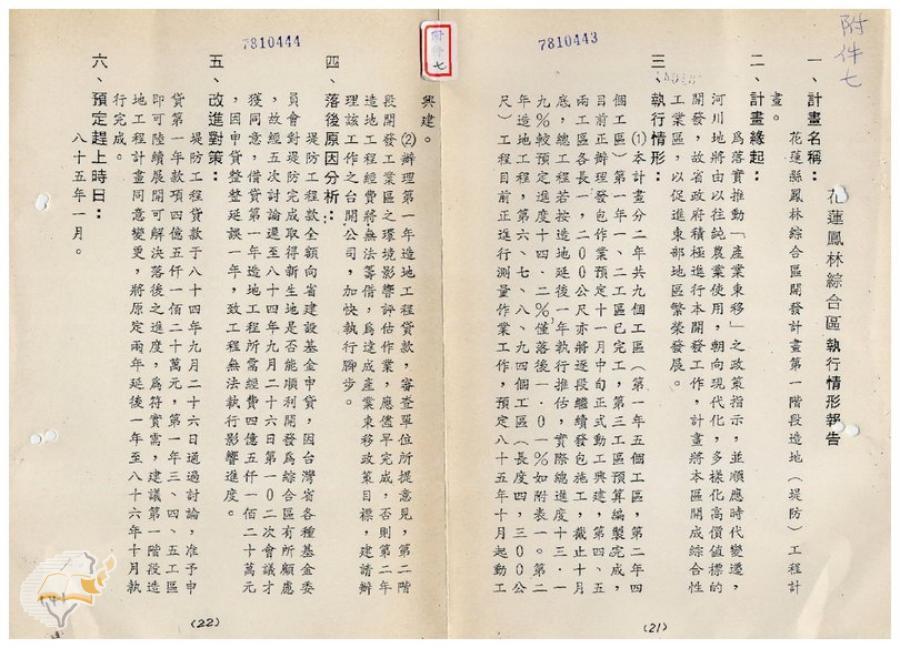 附件七
7810443
花蓮鳳林綜合區執行情形報告
一、計畫名稱：
花蓮縣鳳林綜合區開發計畫第一階段造地（堤防）工程計
畫。
二、計畫緣起：
為落實推動「產業東移」之政策指示，並順應時代變遷，
河川地將由以往純農業使用，朝向現代化，多樣化高價值標的
開發，故省政府積極進行本開發工作，計畫將本區開成綜合性
工業區，以促進東部地區繁榮發展。
三、執行情形：
⑴本計畫分二年共九個工區（第一年五個工區，第二年四
個工區）第一年一、二工區已完工，第三工區預算編製完成，
目前正辦理發包作業預定十一月中旬正式動工興建，第四、五
兩工區各長一，二００公尺亦將逐段繼續發包施工，截止十月
底，總工程若按造地延後一年執行推估，實際總進度十三．一
九％較預定進度十四．二％僅落後一．０一％如附表一。第二
年造地工程，第六、七、八、九四個工區（長度四，三００公
尺）工程目前正進行測量作業工作，預定八十五年十月起動工
(21)
附件七
7810444
興建。
⑵辦理第一年造地工程貸款，審查單位所提意見，第二階
段開發工業區之環境影響評估作業，應儘早完成，否則第二年
造地工程經費將無法籌借，為達成產業東移政策目標，建請辦
理該工作之台開公司，加快執行腳步。
四、落後原因分析：
堤防工程款全額向省建設基金申貸，因台灣省各種基金委
員會對堤防完成取得新生地是否能順利開發為綜合區有所顧慮
，故經五次討論遲至八十四年九月二十六日第一０二次會議才
獲同意，借貸第一年造地工程所需經費四億五仟一佰二十萬元
，因申貸整整延誤一年，致工程無法執行影響進度。
五、改進對策：
堤防工程貸款于八十四年九月二十六日通過討論，准予申
貸第一年款項四億五仟一佰二十萬元，第一年三、四、五工區
即可陸續展開可解決落後之進度，為符實需，建議第一階段造
地工程計畫同意變更，將原定兩年延後一年至八十六年十月執
行完成。
六、預定趕上時日：
八十五年一月。
(22)